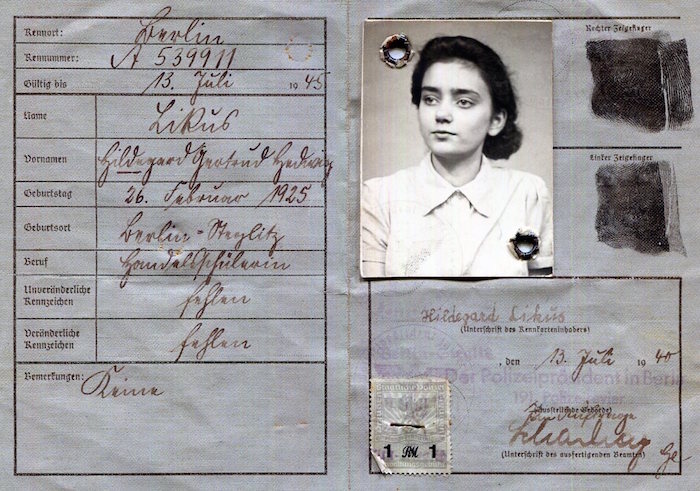 Kennort: Berlin
Kennnummer: A 539911
Gültig bis 13. Juli 1945
Name Likus
Vornamen Hildegard Gertrud Hedwig
Geburtstag 26. Februar 1925
Geburtsort Berlin-Steglitz
Beruf Handelsschülerin
Unveränderliche
Kennzeichen fehlen
Veränderliche
Kennzeichen fehlen
Bemerkungen: Keine
Rechter Zeigefinger
Linker Zeigefinger
Hildegard Likus
(Unterschrift des Kennkarteninhabers)
, den 13. Juli 1940
Der Polizeipräsident in Berlin
(Ausstellende Behörde)
(Unterschrift des ausfertigenden Beamten)
Staatliche Polizei
1 RM 1
Verwaltungsgebühr